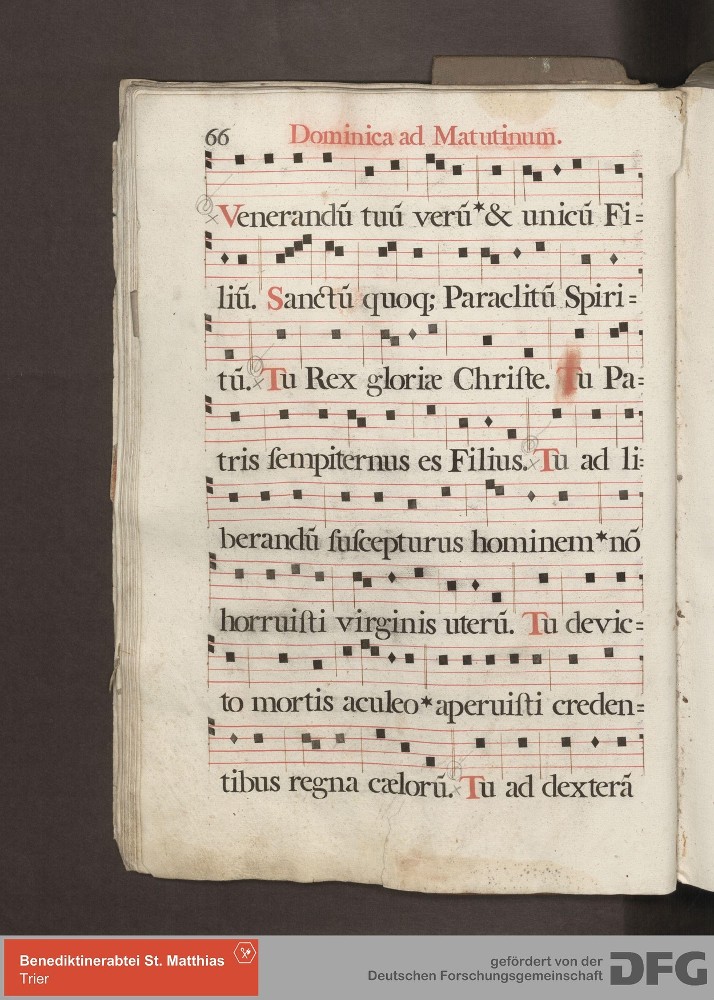 66 Dominica ad Matutinum.
Venerandū tuū verū*& unicū Fi=
liū. Sanctū quoq; Paraclitū Spiri=
tū. Tu Rex gloriæ Chriſte. Tu Pa=
tris ſempiternus es Filius. Tu ad li=
berandū ſuſcepturus hominem*nō
horruiſti virginis uterū. Tu devic=
to mortis aculeo*aperuiſti creden=
tibus regna cælorū. Tu ad dexterā
Benediktinerabtei St. Matthias
Trier
gefördert von der
Deutschen Forschungsgemeinschaft DFG